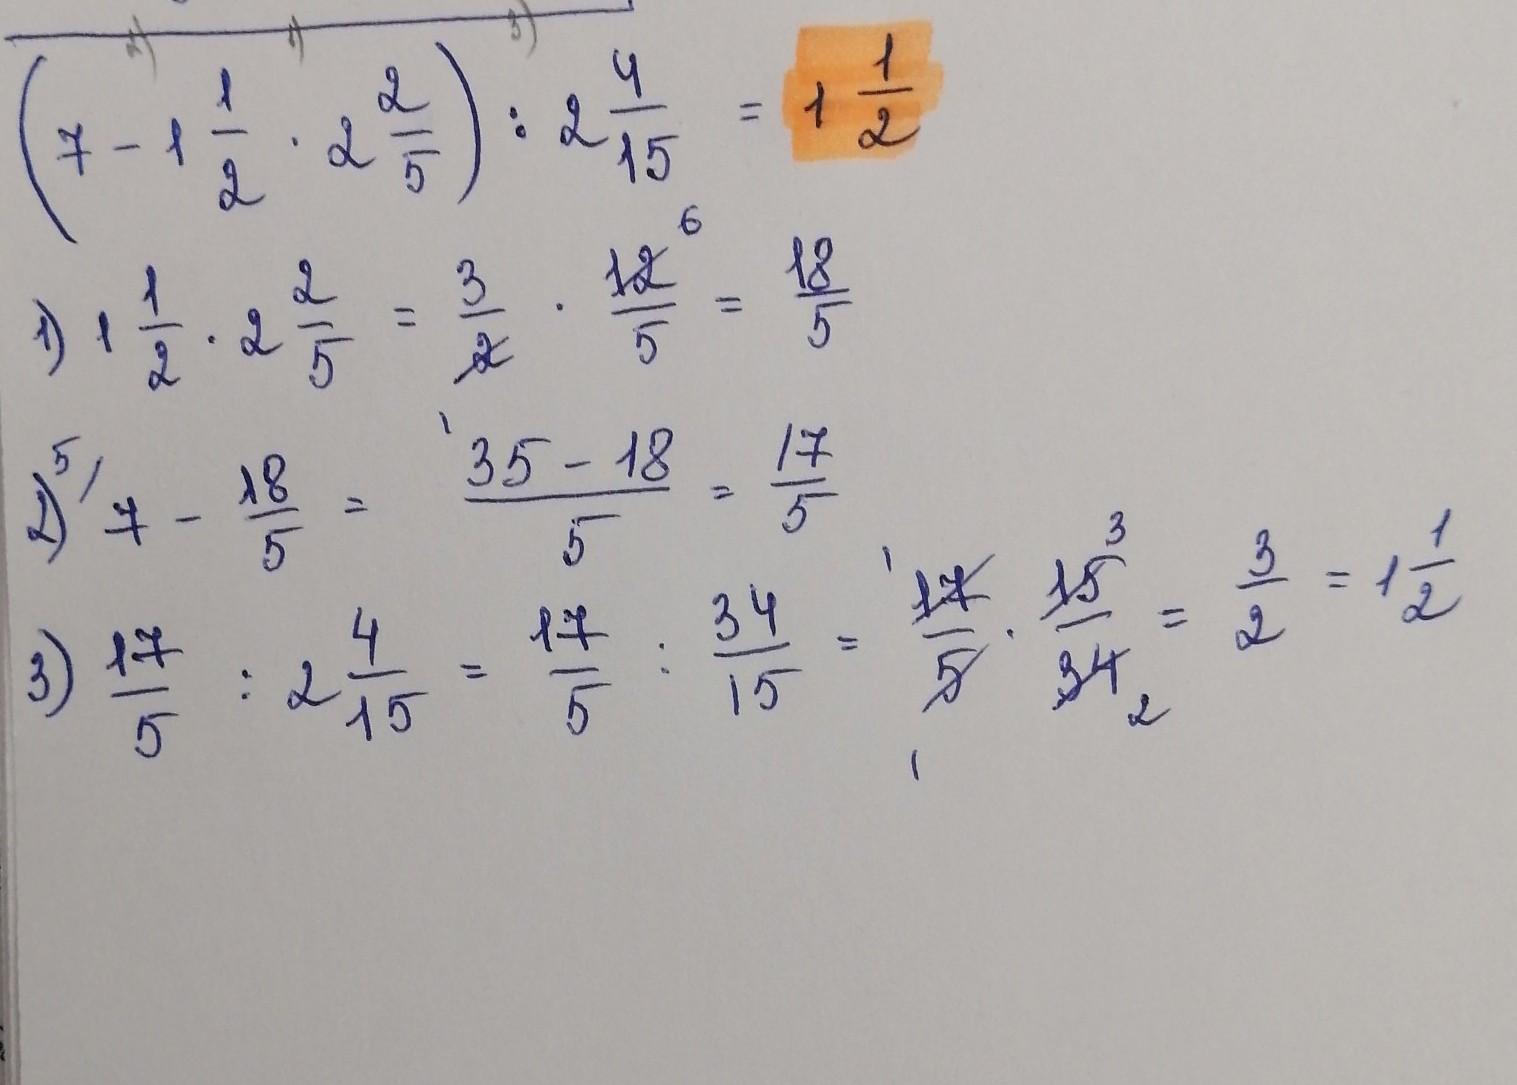 2) 1) 3)
(7 - 1 1/2 · 2 2/5) : 2 4/15 = 1 1/2
1) 1 1/2 · 2 2/5 = 3/2 · 12/5 6 = 18/5
2) 5/ 7 - 18/5 = 1 35 - 18/5 = 17/5
3) 17/5 : 2 4/15 = 17/5 : 34/15 = 1 17/5 1 · 15 3/34 2 = 3/2 = 1 1/2